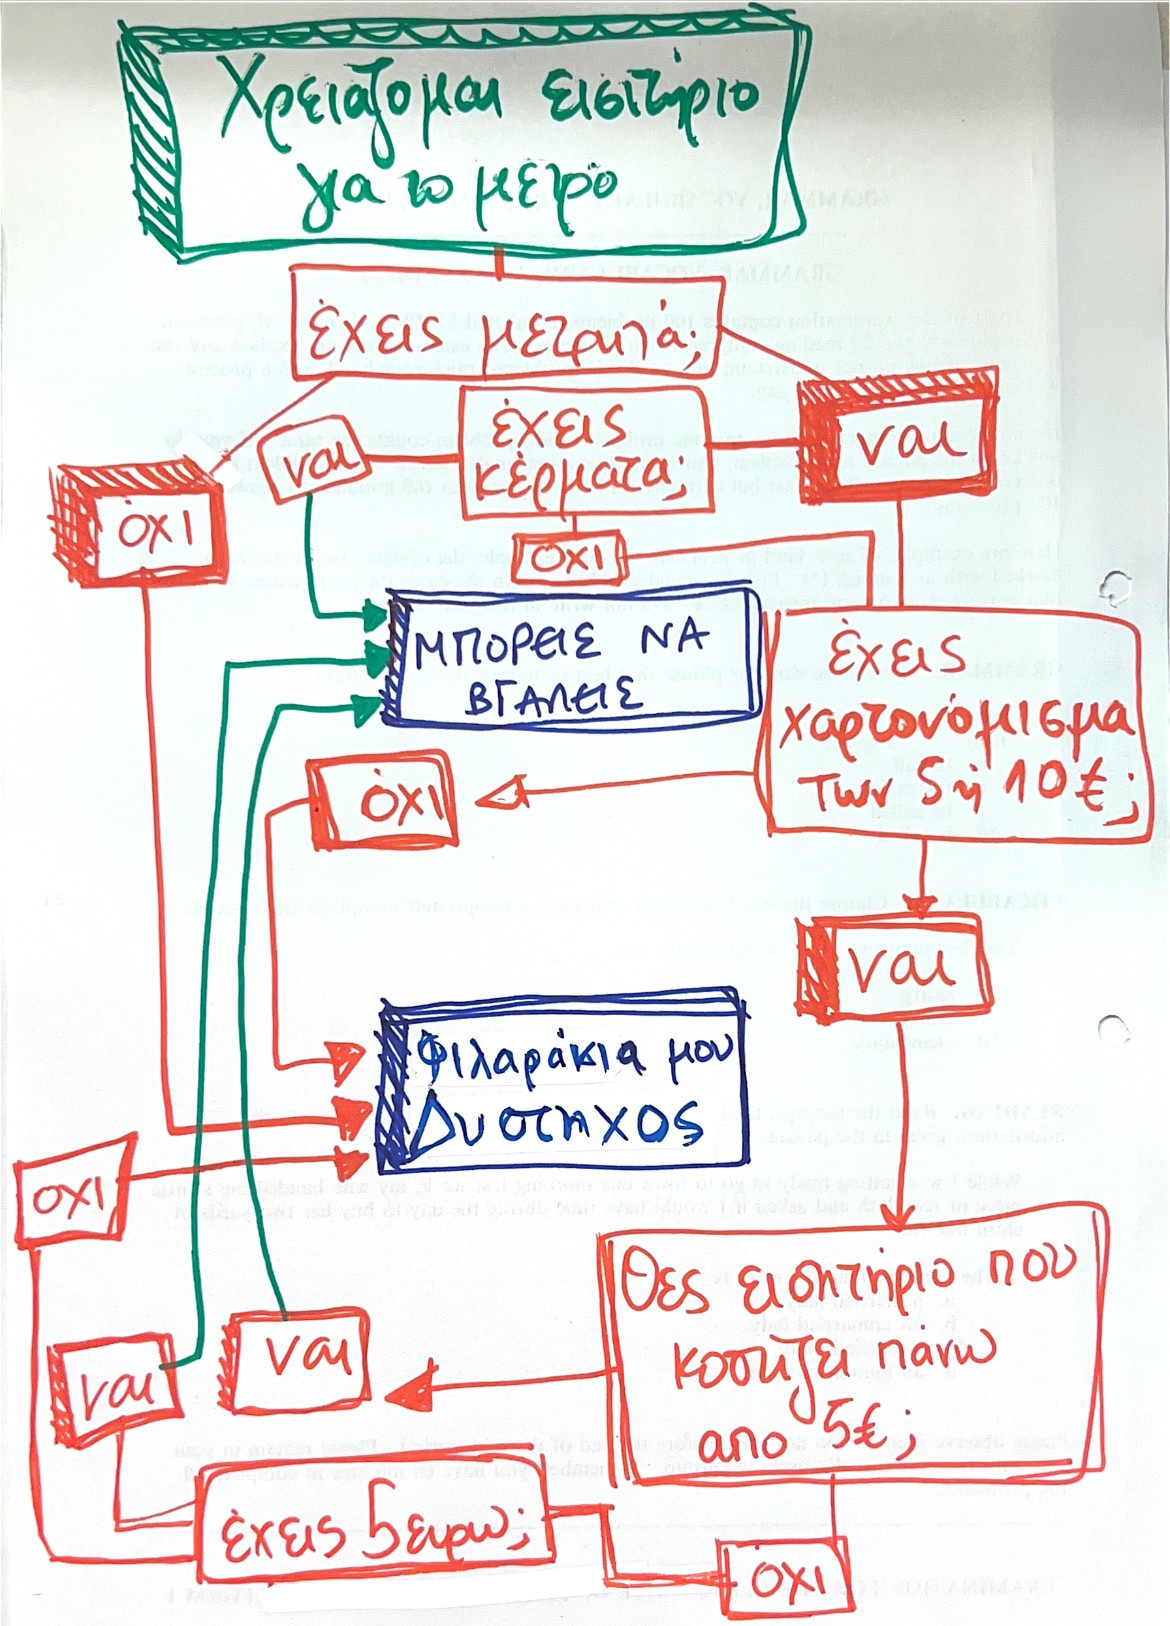 Χρειάζομαι εισιτήριο
για το μετρο
έχεις μετρητά;
ναι
έχεις
κέρματα;
ναι
όχι
οχι
ΜΠΟΡΕΙΣ ΝΑ
ΒΓΑΛΕΙΣ
έχεις
χαρτονόμισμα
των 5 ή 10€;
όχι
ναι
Φιλαράκια μου
Δυστηχος
οχι
θες εισητήριο που
κοστίζει πανω
απο 5€;
ναι
ναι
έχεις 5 ευρω;
οχι